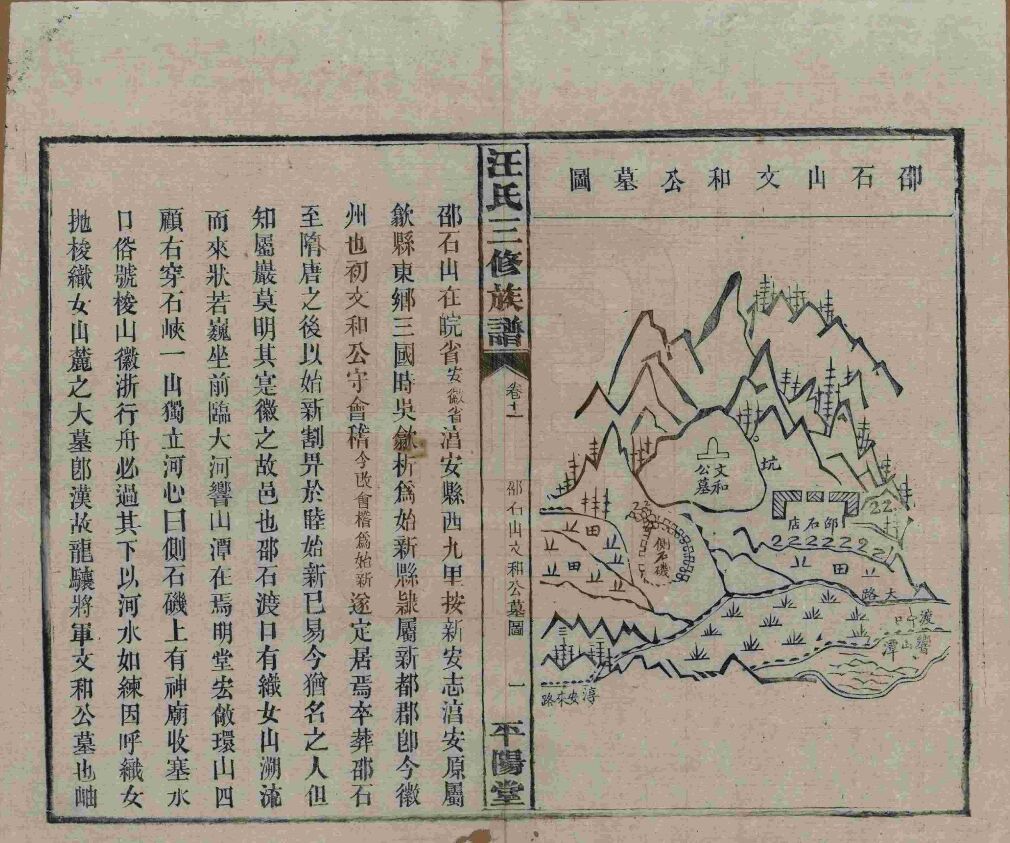 邵石山文和公墓圖
文和
公墓
坑
邵石店
側石磯
田
田
大路
渡口
響山
潭
淳安來路
汪氏三修族譜
卷十一
邵石山文和公墓圖
一
平陽堂
邵石山在皖省安徽省湻安縣西九里按新安志湻安原屬
歙縣東鄉三國時吳歙析爲始新縣隸屬新都郡卽今徽
州也初文和公守會稽今改會稽爲始新遂定居焉卒葬邵石
至隋唐之後以始新割畀於睦始新已易今猶名之人但
知屬嚴莫明其寔徽之故邑也邵石渡口有織女山溯流
而來狀若巍坐前臨大河響山潭在焉明堂宏敞環山四
顧右穿石峽一山獨立河心曰側石磯上有神廟收塞水
口俗號梭山徽浙行舟必過其下以河水如練因呼織女
拋梭織女山麓之大墓卽漢故龍驤將軍文和公墓也岫